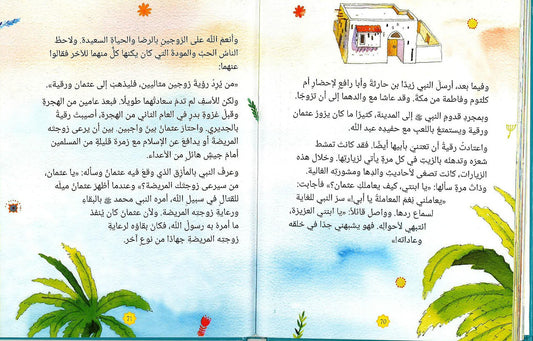 وفيما بعد، أرسلَ النبي زيدًا بن حارثة وأبا رافعٍ لإحضارِ أم
كلثوم وفاطمة من مكة. وقد عاشا مع والدهما إلى أن تزوجا.
وبمجرد قدوم النبي ﷺ إلى المدينة، كثيرًا ما كان يزورُ عثمان
ورقية ويستمتعُ باللعبِ مع حفيده عبد الله.
واعتادتْ رقيةُ أن تعتنيَ بأبيها أيضًا. فقد كانت تمشط
شعره وتدهنه بالزيتِ في كل مرةٍ يأتي لزيارتها. وخلال هذه
الزيارات، كانت تصغي لأحاديثِ والدِها ومشورته الغالية.
وذاتَ مرةٍ سألها: «يا ابنتي، كيف يعاملكِ عثمان؟» فأجابت:
«يعاملني نِعمَ المعاملةُ يا أبي!» سر النبي للغاية
لسماع ردها. وواصل قائلاً: «يا ابنتي العزيزة،
انتبهي لأحوالِهِ. فهو يشبهني جدًا في خلقه
وعاداته!»
70
وأنعمَ الله على الزوجينِ بالرضا والحياةِ السعيدة. ولاحظَ
الناسُ الحبَّ والمودةَ التي كان يكنها كلٌّ منهما للآخر فقالوا
عنهما:
«من يُردْ رؤيةَ زوجين مثاليين، فليذهبْ إلى عثمانَ ورقية».
ولكن للأسفِ لم تدمْ سعادتهما طويلًا. فبعد عامين من الهجرةِ
وقبل غزوةِ بدرٍ في العام الثاني من الهجرةِ، أصيبتْ رقيةُ
بالجديري. واحتار عثمانُ بين واجبين. بين أن يرعى زوجته
المريضة أو يدافعَ عن الإسلامِ مع زمرةٍ قليلةٍ من المسلمين
أمامَ جيشٍ هائلٍ من الأعداء.
وعرفَ النبي بالمأزقِ الذي وقعَ فيه عثمانُ وسأله: «يا عثمان،
من سيرعى زوجتَك المريضة؟» وعندما أظهرَ عثمانُ ميلَه
للقتالِ في سبيل الله، أمره النبي محمد ﷺ بالبقاءِ
ورعايةِ زوجتِه المريضة. ولأن عثمانَ كان يُنفذُ
ما أمره به رسولُ الله، فكان بقاؤه لرعايةِ
زوجتِه المريضةِ جهادًا من نوعٍ آخر.
71